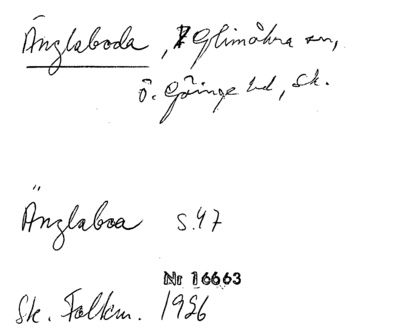 Änglaboda, Glimåkra sn,
Ö. Göinge hd, Sk.
Änglaboa s.47
Nr 16663
Sk. Folkm. 1926